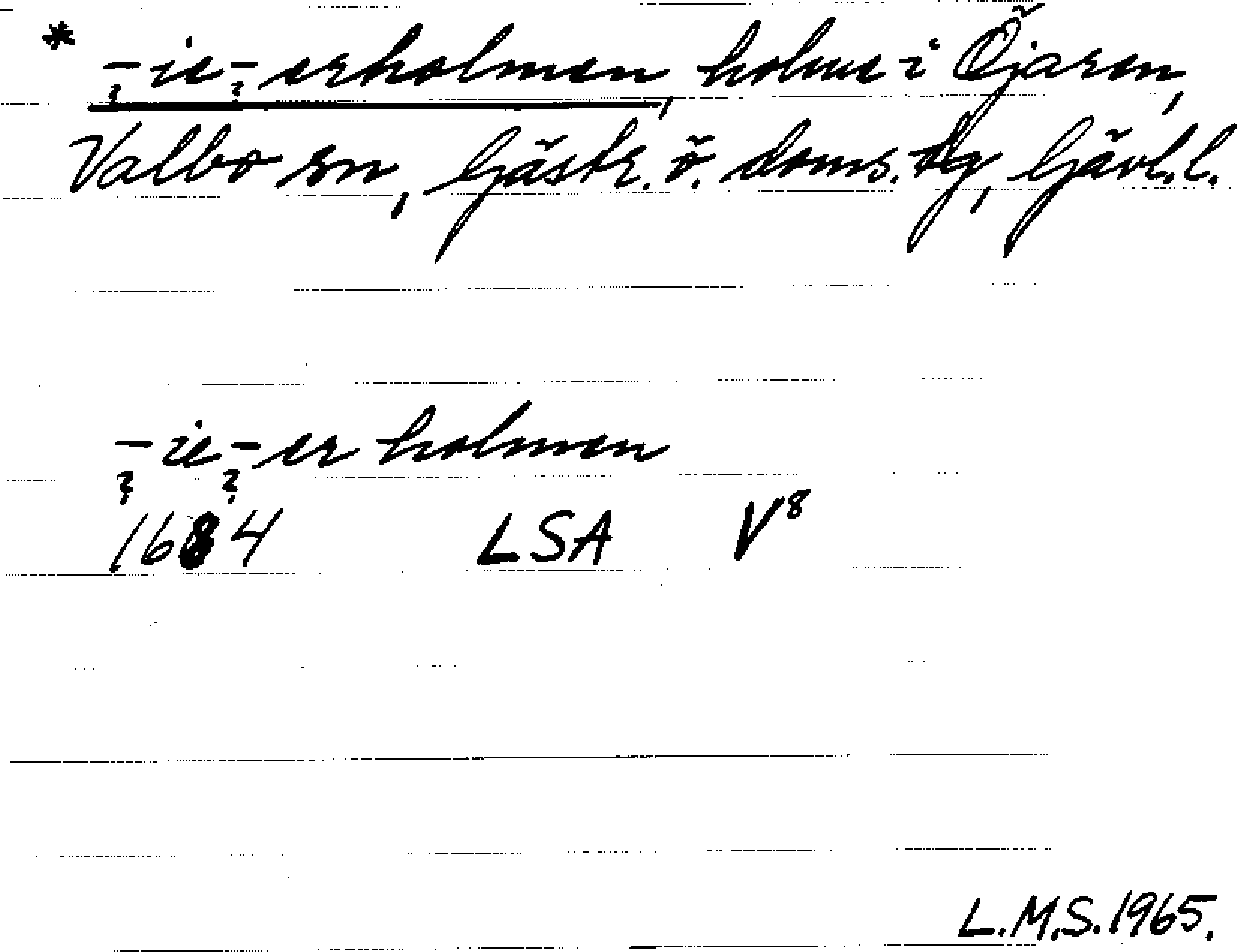 * -ie- erholmen, holme i Öjaren,
? ?
Valbo sn, Gästr. ö. doms. dg, Gävl.l.
-ie-er holmen
? ?
1684 LSA V⁸
L.M.S. 1965.